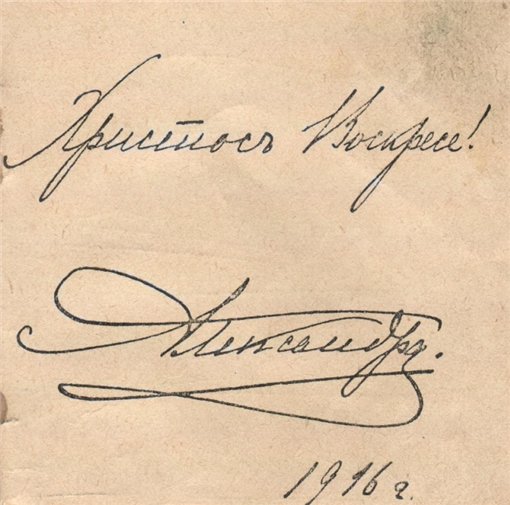 Христосъ Воскресе!
Александра.
1916 г.